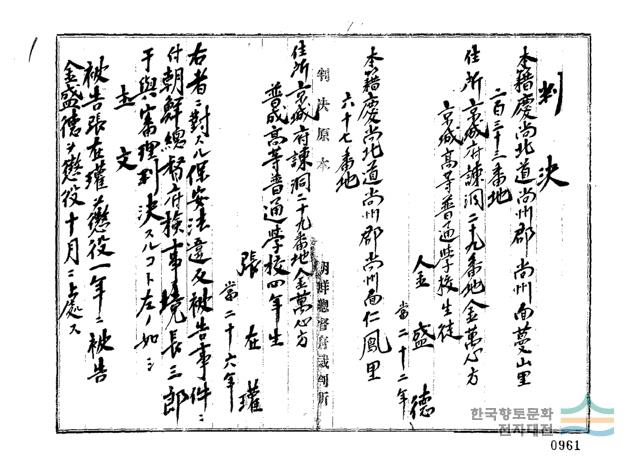 判決
本籍慶尚北道尚州郡尚州面蔓山里
二百三十三番地
住所京城府諫洞二十九番地金萬心方
京城高等普通学校生徒
金盛德
当二十二年
本籍慶尚北道尚州郡尚州面仁鳳里
六十七番地
判決原本
朝鮮総督府裁判所
住所京城府諫洞二十九番地金萬心方
普成高等普通学校四年生
張在瓘
当二十六年
右者ニ對スル保安法違反被告事件ニ
付朝鮮總督府検事境長三郎
干與審理判決スルコト左ノ如シ
主文
被告張在瓘ヲ懲役一年ニ被告
金盛德ヲ懲役十月ニ處ス
한국향토문화
전자대전
0961